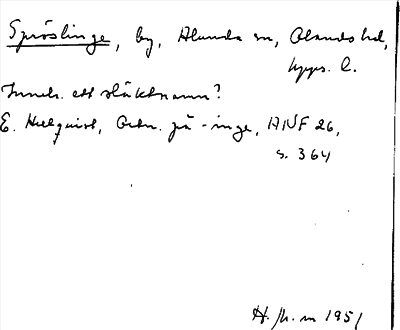 Spröslinge, by, Alunda sn, Olands hd,
Upps. l.
Inneh. ett släktnamn?
E. Hellquist, Ortn. på -inge, ANF 26,
s. 364
H. /h. m 1951